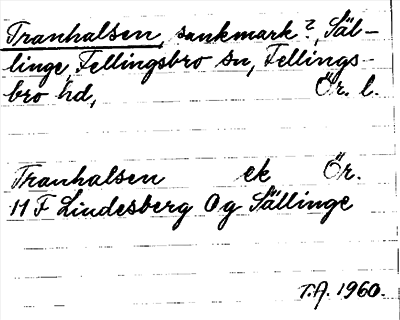 Tranhalsen, sankmark?, Säl-
linge, Fellingsbro sn, Fellings-
bro hd, Ör. l.
Tranhalsen ek Ör.
11 F Lindesberg Og Sällinge
T.A. 1960.